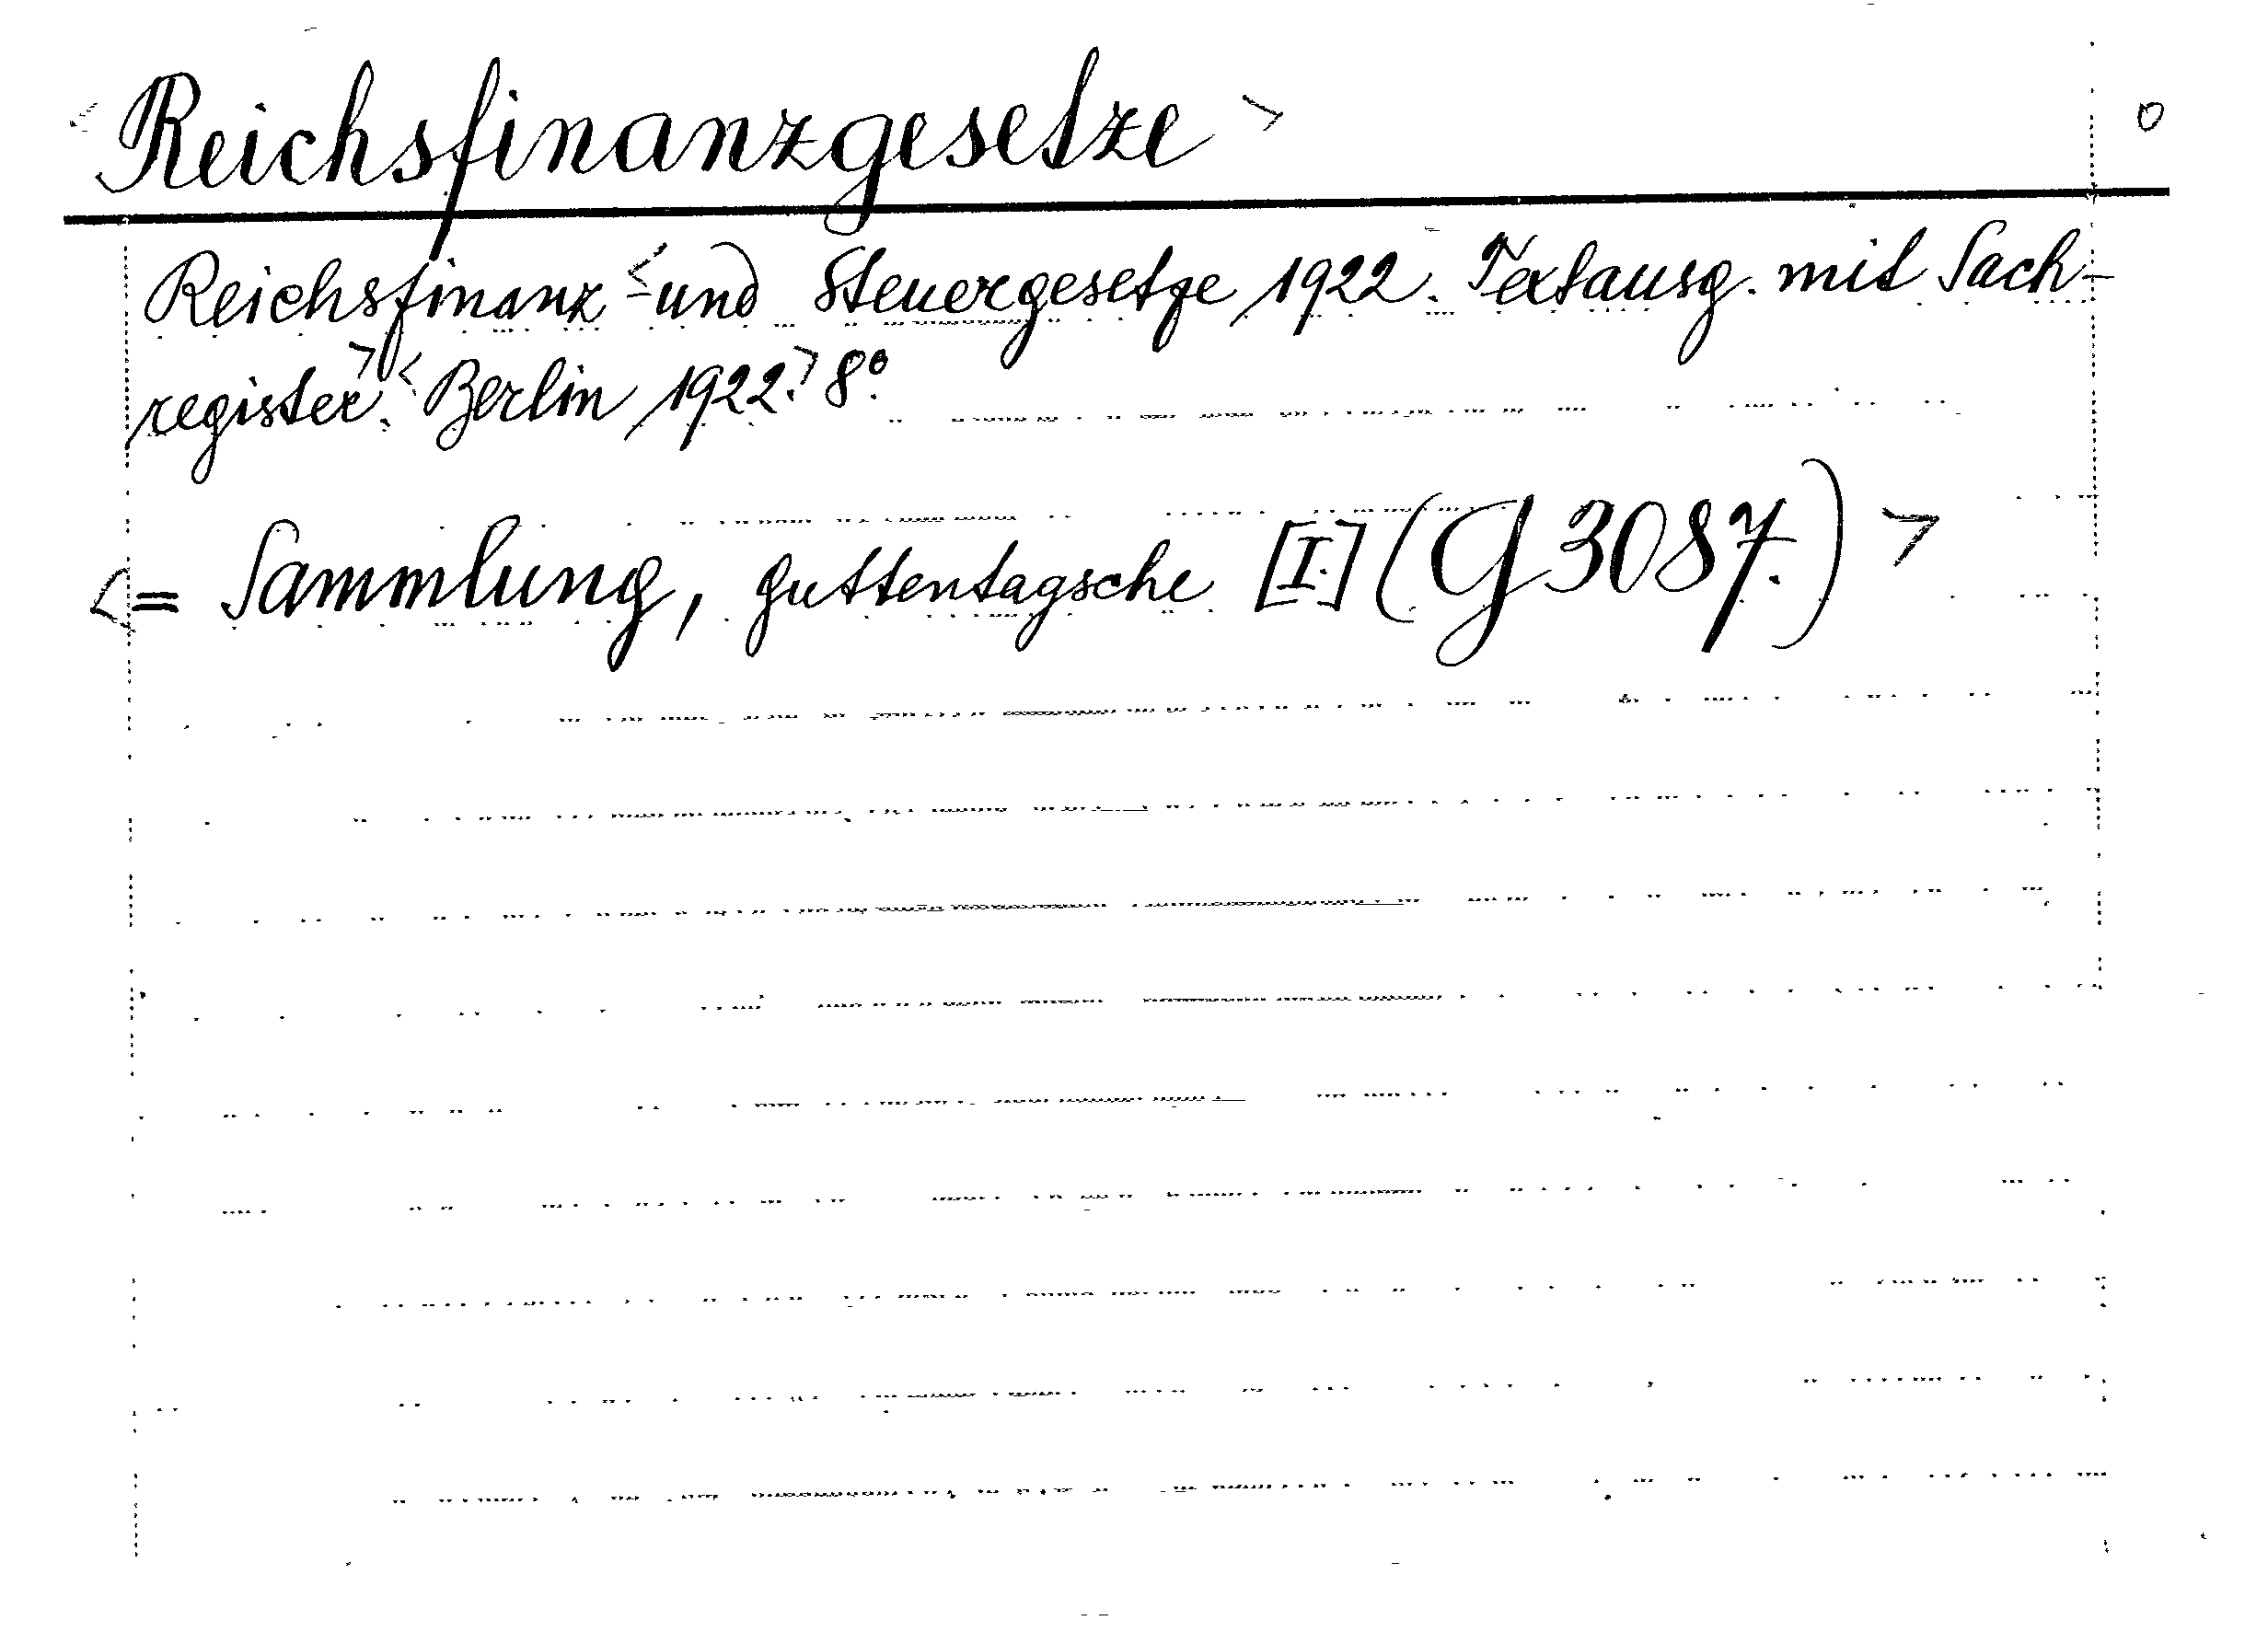 <Reichsfinanzgesetze> o
Reichsfinanz-<und Steuergesetze 1922. Textausg. mit Sach-
register>.<Berlin 1922.>8°.
<= Sammlung, guttentagsche [I.] (G 3087.)>